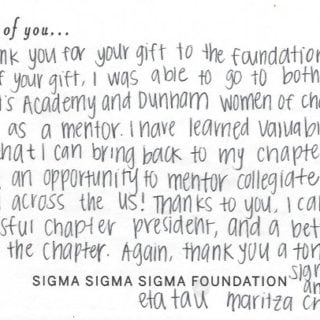 of you...
nk you for your gift to the foundation
f your gift, I was able to go to both
t's Academy and Dunham women of cha
as a mentor. I have learned valuabl
hat I can bring back to my chapte
an opportunity to mentor collegiate
across the US! Thanks to you, I ca
sful chapter president, and a bet
the chapter. Again, thank you a ton
sigm
SIGMA SIGMA SIGMA FOUNDATION
an
eta tau maritza cr